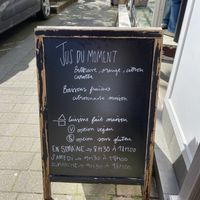 JUS DU MOMENT
Betterave, orange, citron
carotte
Boissons fraîches
citronnade maison
Cuisine fait maison
V option vegan
option sans gluten
EN SEMAINE → 8H30 À 18H00
SAMEDI → 9H30 À 18H00
DIMANCHE → 9H30 À 18H00